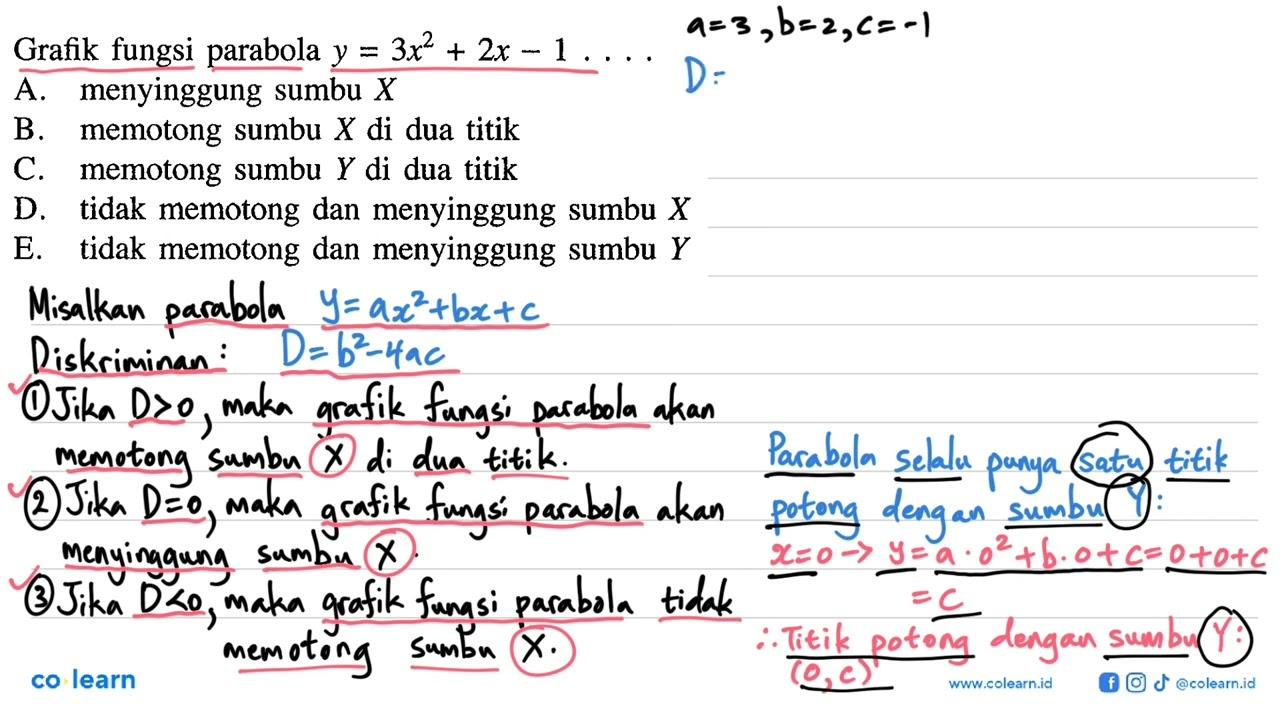 Grafik fungsi parabola y = 3x² + 2x − 1 . . . .
A. menyinggung sumbu X
B. memotong sumbu X di dua titik
C. memotong sumbu Y di dua titik
D. tidak memotong dan menyinggung sumbu X
E. tidak memotong dan menyinggung sumbu Y
a=3, b=2, c=-1
D=
Misalkan parabola y=ax²+bx+c
Diskriminan: D=b²-4ac
① Jika D>0, maka grafik fungsi parabola akan
memotong sumbu X di dua titik.
② Jika D=0, maka grafik fungsi parabola akan
menyinggung sumbu X.
③ Jika D<0, maka grafik fungsi parabola tidak
memotong sumbu X.
Parabola selalu punya satu titik
potong dengan sumbu Y:
x=0 → y= a·0²+b·0+c=0+0+c
=c
∴ Titik potong dengan sumbu Y:
(0,c)
co learn
www.colearn.id @colearn.id